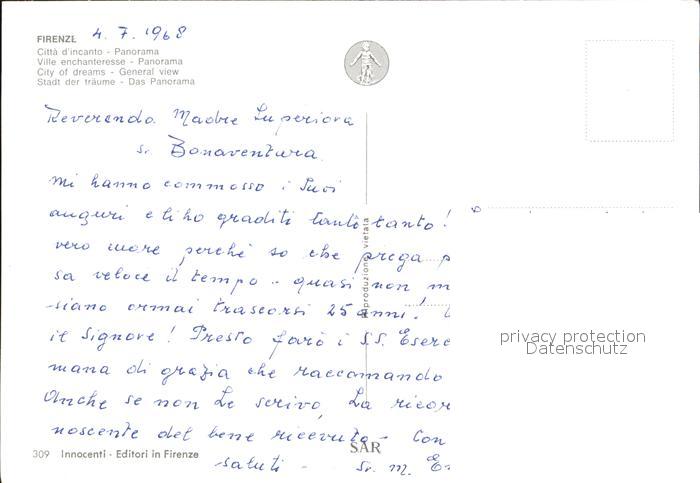 FIRENZE 4.7.1968
Città d'incanto - Panorama
Ville enchanteresse - Panorama
City of dreams - General view
Stadt der träume - Das Panorama
Reverenda Madre Superiora
sr. Bonaventura
mi hanno commosso i Suoi
auguri e li ho graditi tanto tanto!
vero cuore perché so che prega p
sa veloce il tempo - quasi non m
siano ormai trascorsi 25 anni!
il Signore! Presto farò i S.S. Eserc
mana di grazia che raccomando
Anche se non Le scrivo, La ricor
noscente del bene ricevuto - Con
saluti - Sr. M. E
riproduzione vietata
privacy protection
Datenschutz
SAR
309 Innocenti - Editori in Firenze